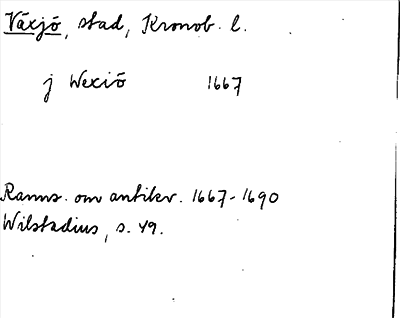 Växjö, stad, Kronob. l.
j Wexiö 1667
Ranns. om antikv. 1667-1690
Wilstadius, s. 49.